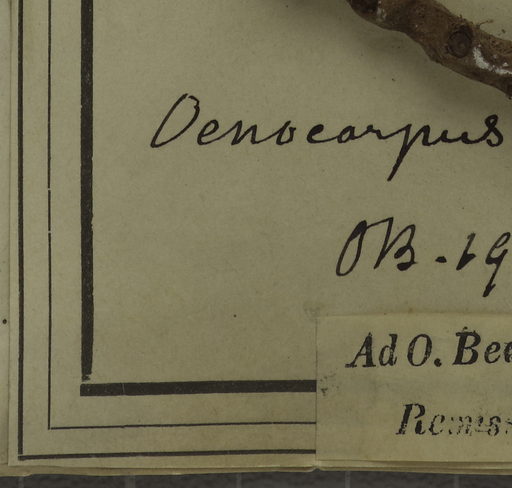 Oenocarpus
OB. 19
Ad O. Bec
Remis